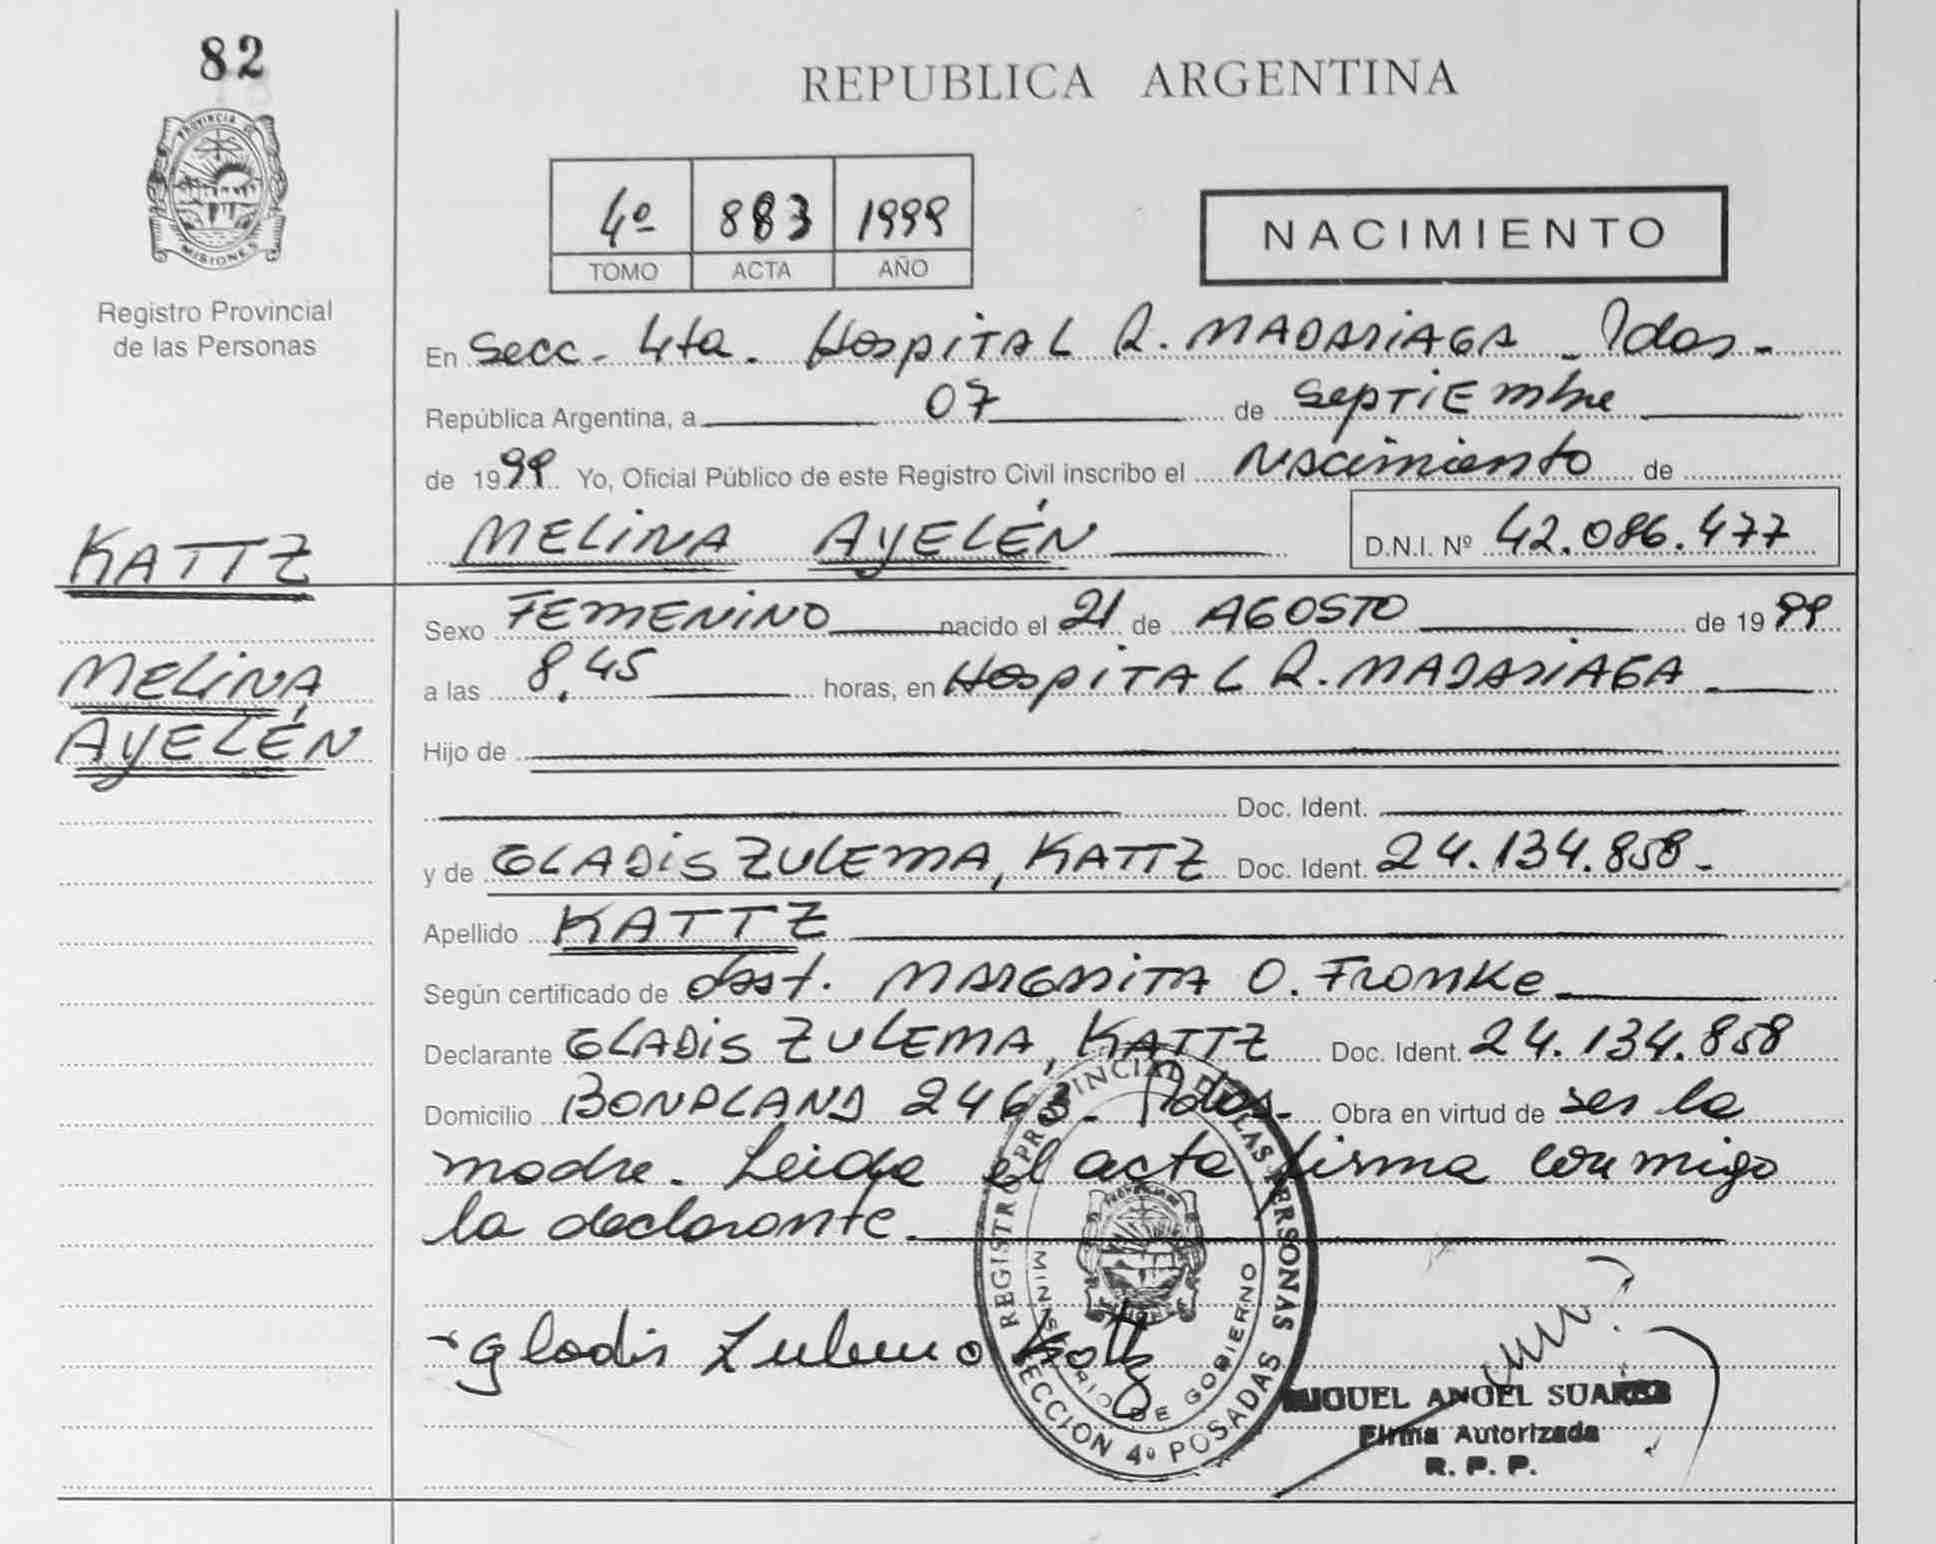 82
REPUBLICA ARGENTINA
PROVINCIA DE
MISIONES
Registro Provincial
de las Personas
4º 883 1999
TOMO ACTA AÑO
NACIMIENTO
En Secc. 4ta. Hospital R. MADARIAGA - Pdas -
República Argentina, a 07 de septiembre
de 1999 Yo, Oficial Público de este Registro Civil inscribo el Nacimiento de
KATTZ
MELINA AYELÉN D.N.I. Nº 42.086.477
Sexo FEMENINO nacido el 21 de AGOSTO de 1999
MELINA
AYELÉN
a las 8,45 horas, en Hospital R. MADARIAGA
Hijo de
Doc. Ident.
y de GLADIS ZULEMA, KATTZ Doc. Ident. 24.134.858.-
Apellido KATTZ
Según certificado de Obst. MARGARITA O. Fromke
Declarante GLADIS ZULEMA, KATTZ Doc. Ident. 24.134.858
Domicilio BONPLAND 2463 - Pdas. - Obra en virtud de ser la
madre. Leida el acta firma conmigo
la declarante.
Gladis Zulema Kattz
REGISTRO PROVINCIAL DE LAS PERSONAS
MINISTERIO DE GOBIERNO
SECCION 4º POSADAS
MIGUEL ANGEL SUAREZ
Firma Autorizada
R. P. P.